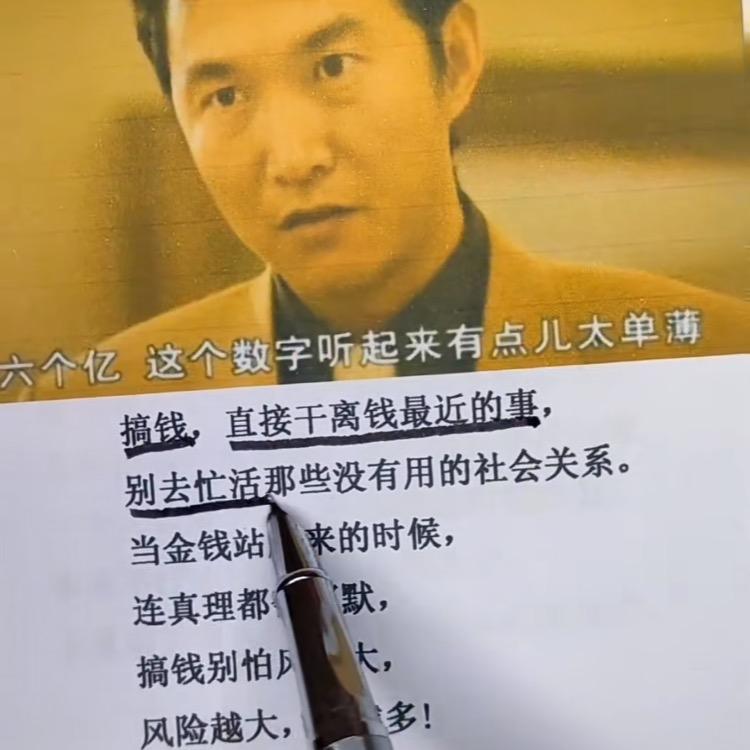 六个亿 这个数字听起来有点儿太单薄
搞钱，直接干离钱最近的事，
别去忙活那些没有用的社会关系。
当金钱站 来的时候，
连真理都 默，
搞钱别怕风 大，
风险越大， 多！